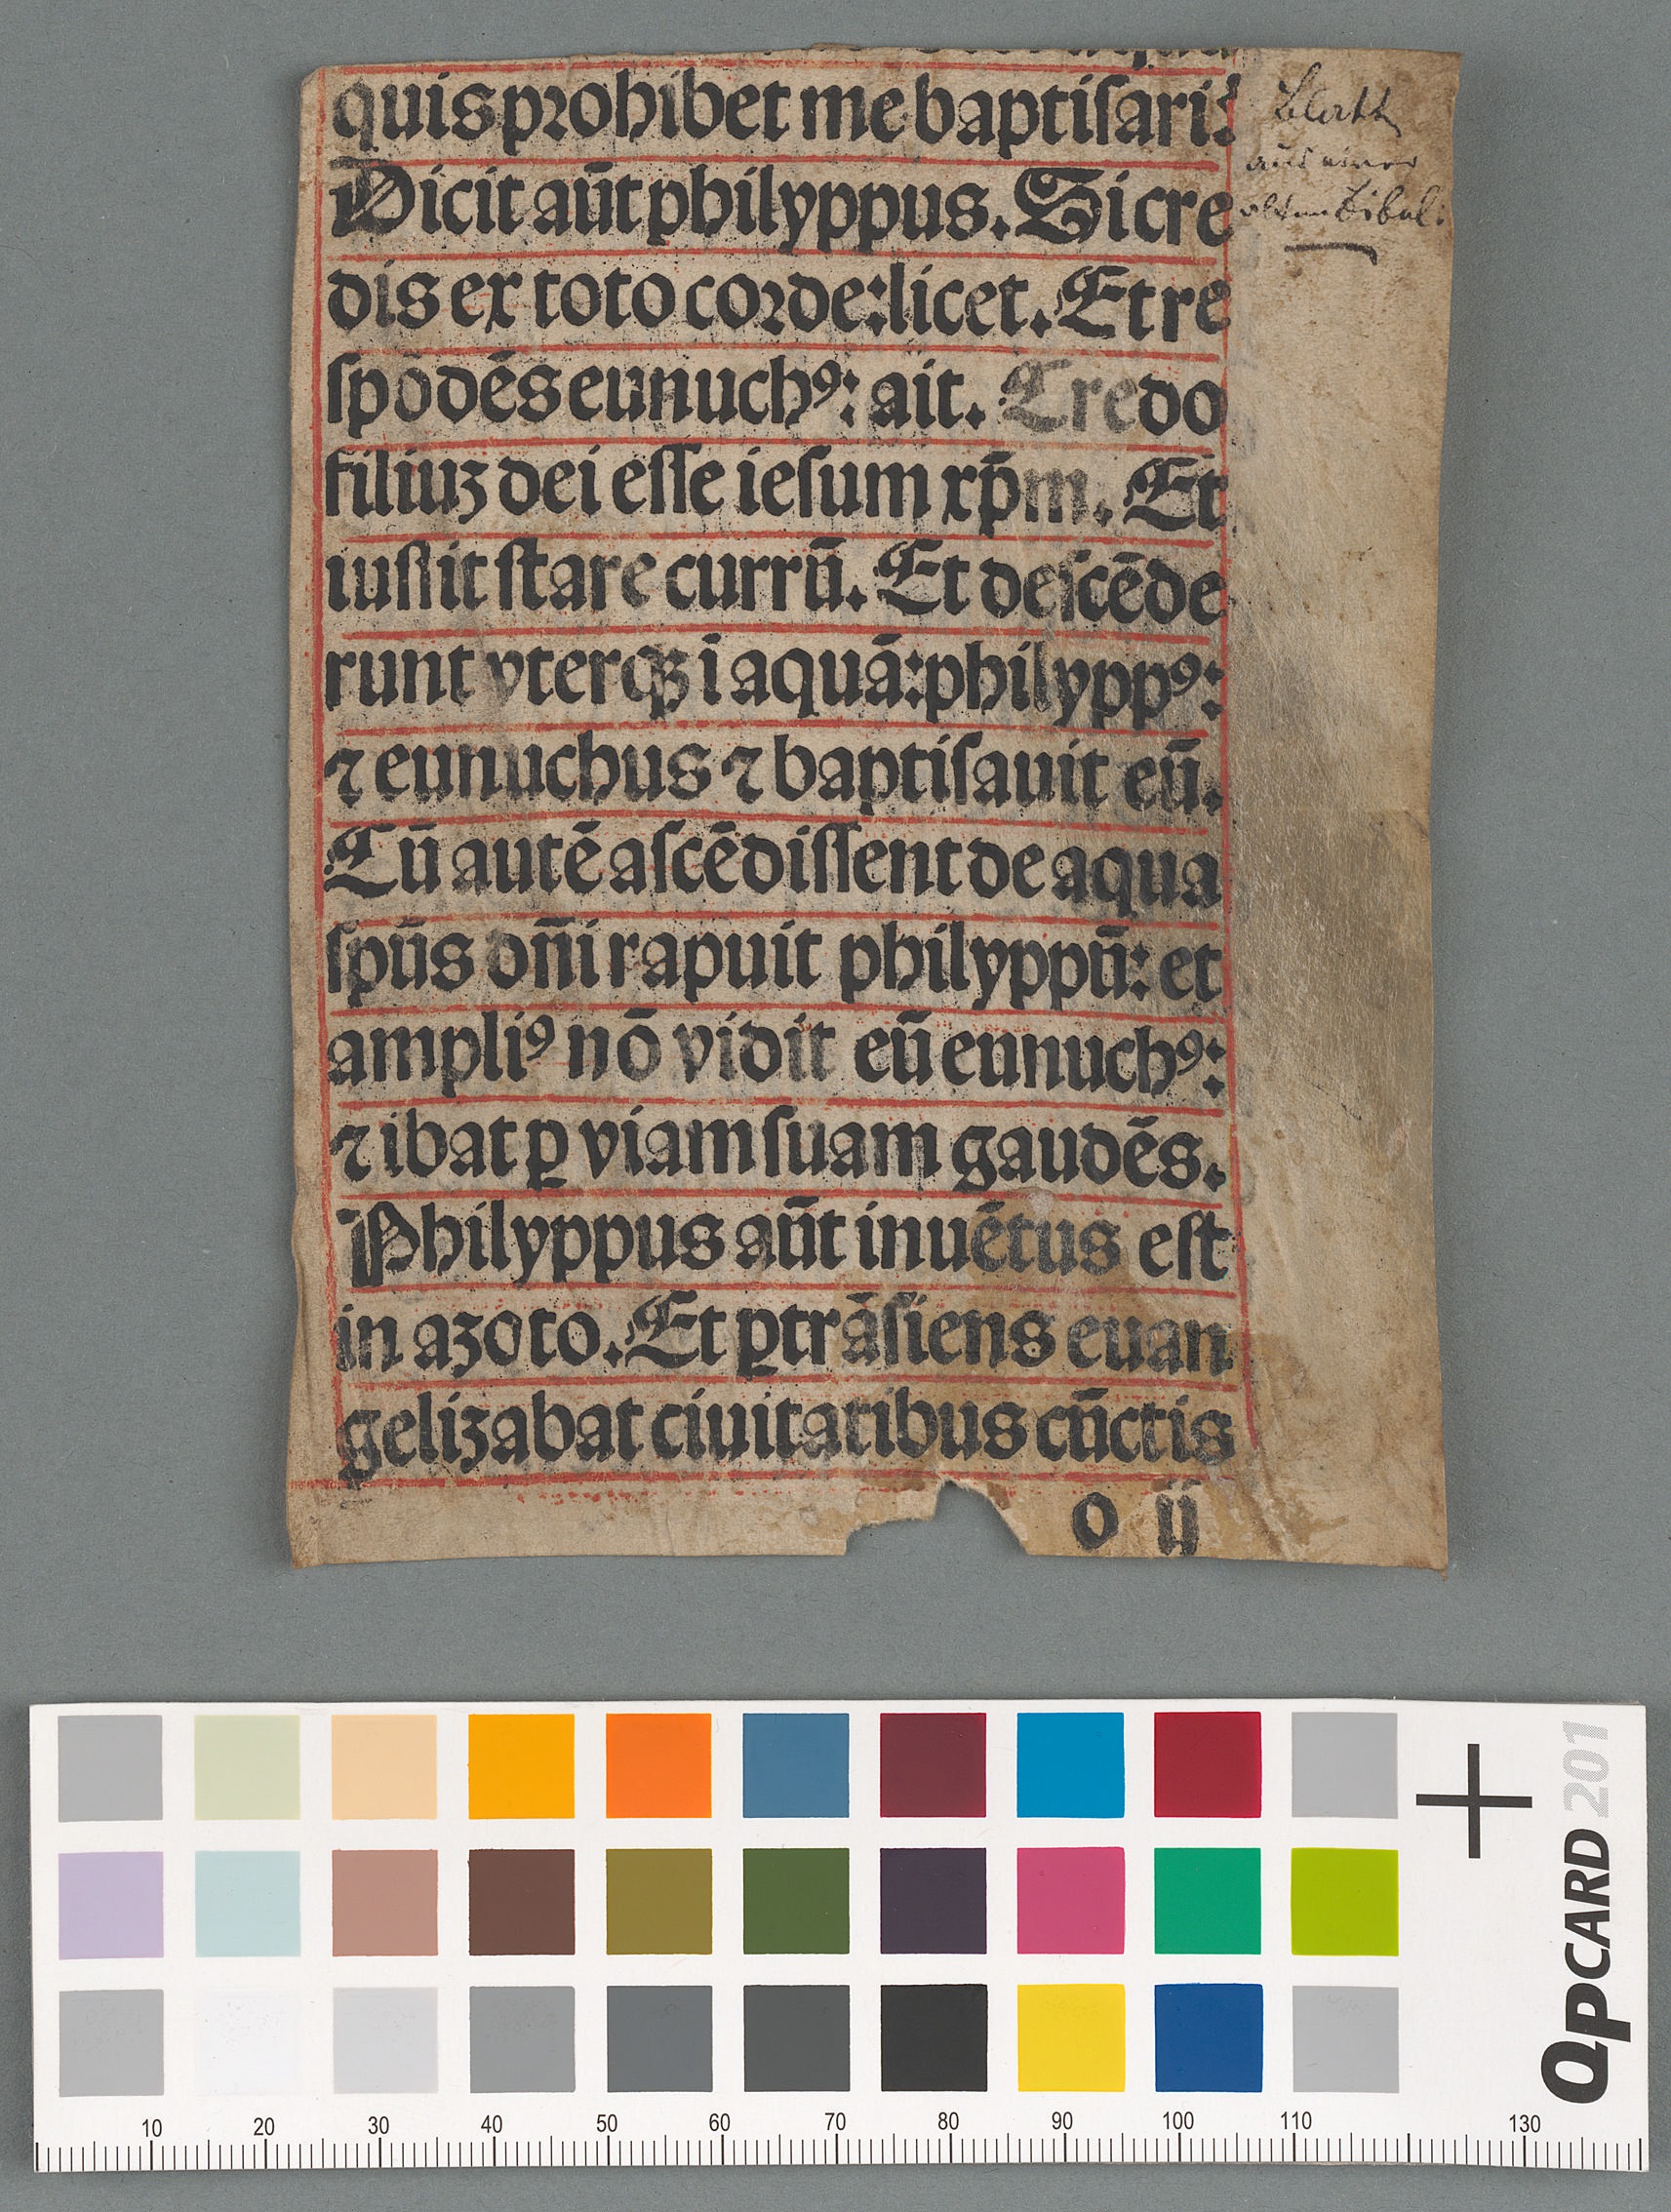 quis prohibet me baptisari?
Dicit aūt philyppus. Si cre
dis ex toto corde: licet. Et re
spōdēs eunuchꝰ: ait. Credo
filiuȝ dei esse iesum xp̄m. Et
iussit stare currū. Et descēde
runt vterqȝ ī aquā: philyppꝰ:
⁊ eunuchus ⁊ baptisauit eū.
Cū autē ascēdissent de aqua
spūs dn̄i rapuit philyppū: et
ampliꝰ nō vidit eū eunuchꝰ:
⁊ ibat ꝑ viam suam gaudēs.
Philyppus aūt inuētus est
in azoto. Et ꝑtrāsiens euan
gelizabat ciuitatibus cūctis
o ij
Blatt
aus einer
alten Bibel.
QPCARD 201
10 20 30 40 50 60 70 80 90 100 110 130